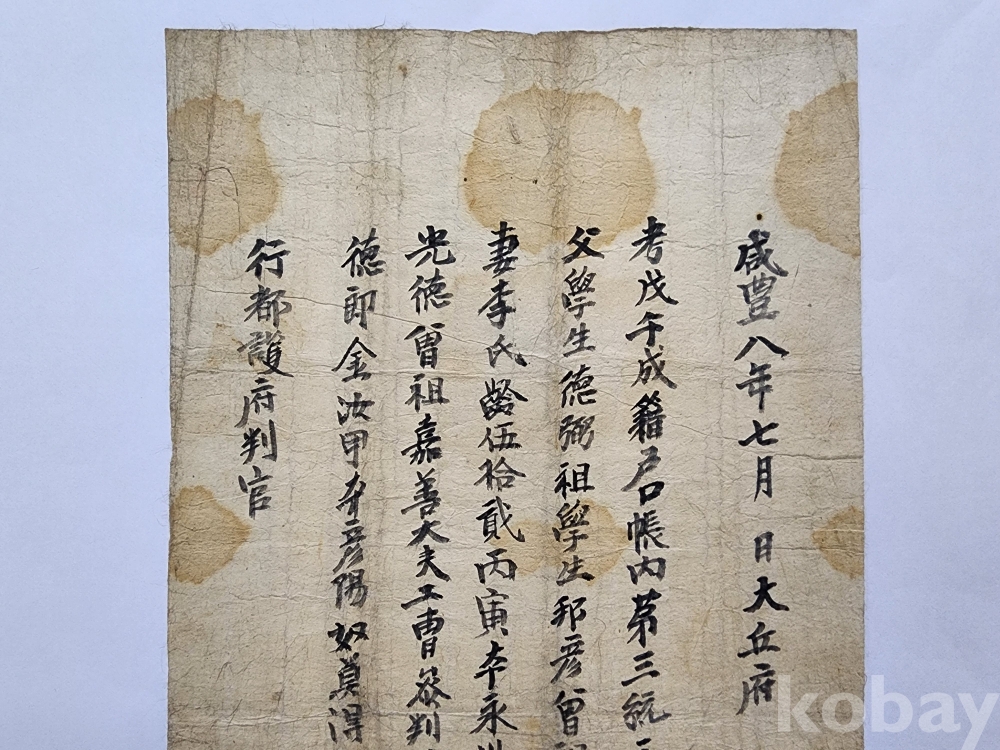 咸豊八年七月 日大丘府
考戊午成籍戶口帳內第三統
父學生德弼祖學生邦彦曾
妻李氏齡伍拾貳丙寅本永
光德曾祖嘉善大夫工曹參判
德郎金汝甲本彦陽奴莫得
行都護府判官
kobay